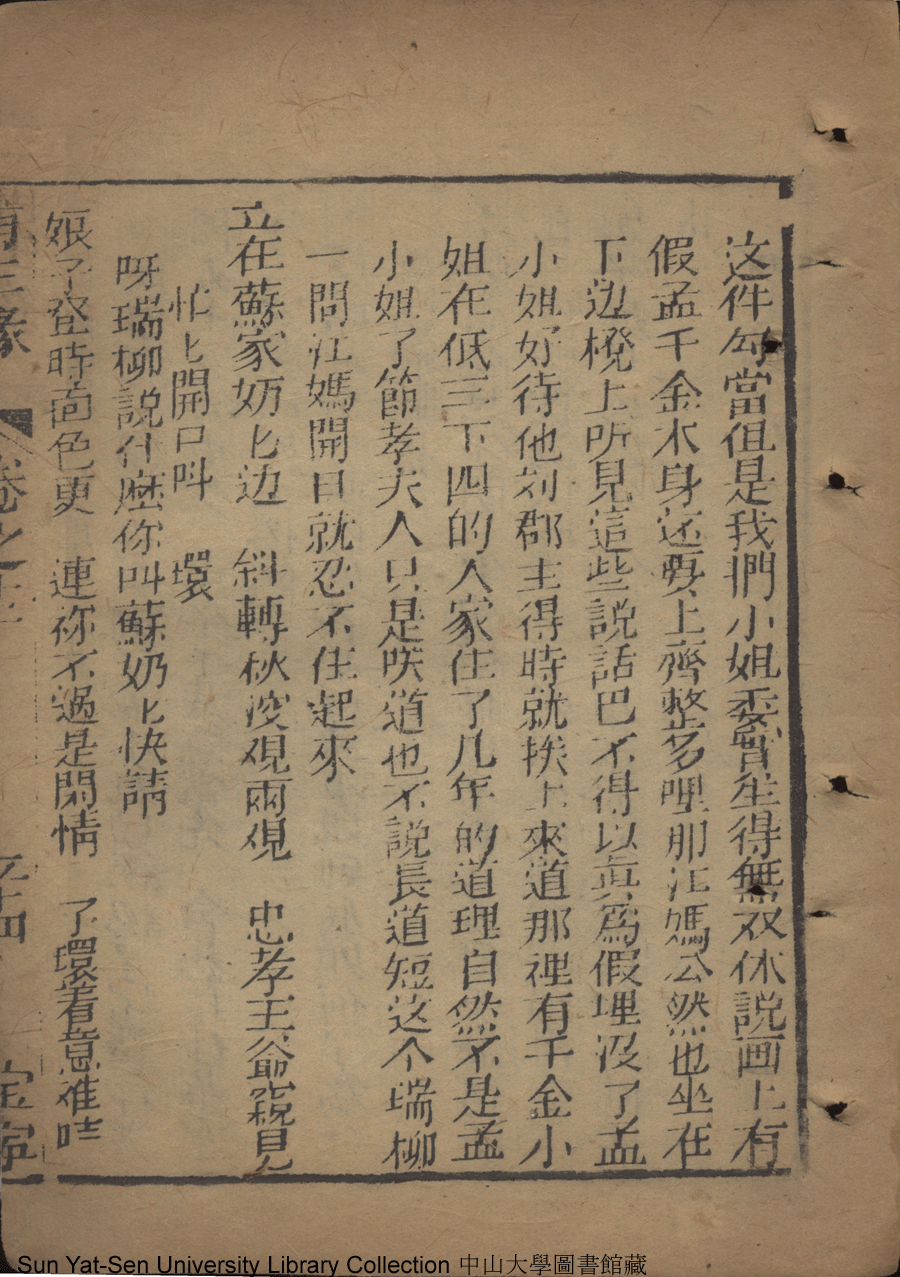 这件勾當但是我們小姐委實生得無双休說画上有
假孟千金本身还要上齊整多哩那江媽公然也坐在
下边櫈上所見這些說話巴不得以真為假埋没了孟
小姐好待他刘郡主得時就挨上來道那裡有千金小
姐在低三下四的人家住了几年的道理自然不是孟
小姐了節孝夫人只是咲道也不說長道短这个瑞柳
一問江媽開日就忍不住起來
立在蘇家奶匕边　斜轉秋波覌兩覌　忠孝王爺窺見
忙匕開口叫　環
呀瑞柳說什麽你叫蘇奶匕快請
娘子登時面色更　連祢不過是閑情　了環着意准
再生緣　卷之十五　五十四　宝寧
Sun Yat-Sen University Library Collection 中山大學圖書館藏